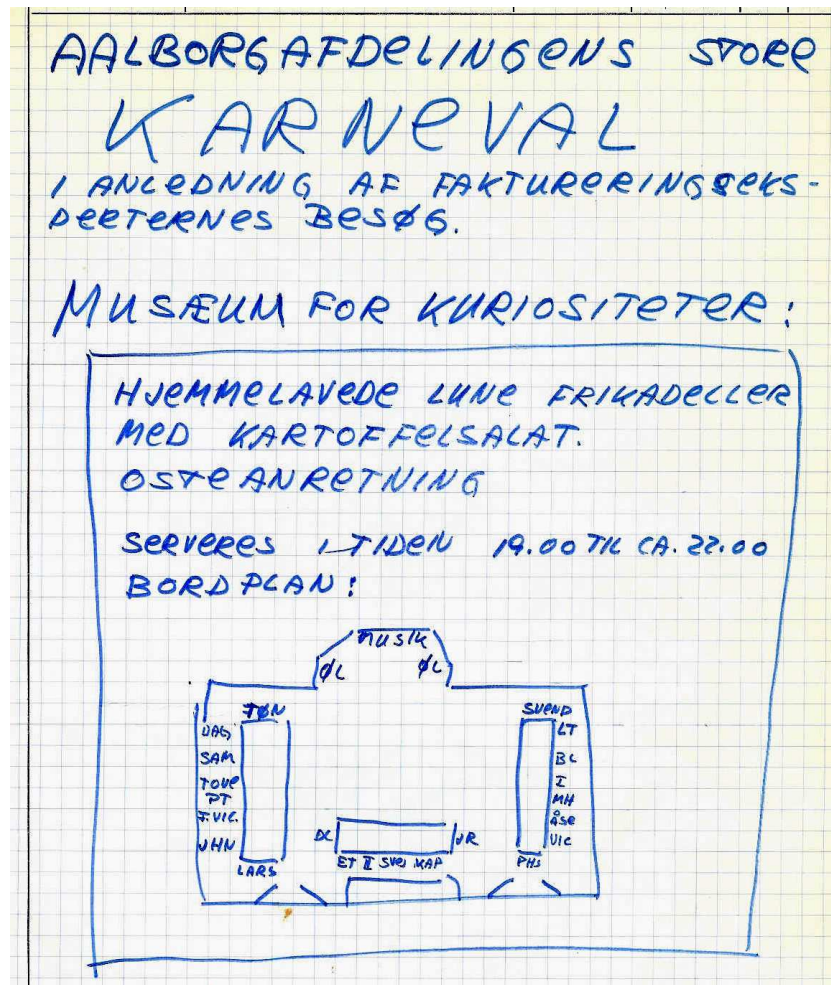 AALBORGAFDELINGENS STORE
KARNEVAL
I ANLEDNING AF FAKTURERINGSEKS-
PERTERNES BESØG.
MUSÆUM FOR KURIOSITETER:
HJEMMELAVEDE LUNE FRIKADELLER
MED KARTOFFELSALAT.
OSTEANRETNING
SERVERES I TIDEN 19.00 TIL CA. 22.00
BORDPLAN:
MUSIK
ØL ØL
JØN SVEND
DAG LT
SAM BL
TOVE I
PT MH
F.VIC. ÅSE
JHN VIC
JR
ET II SVEJ KAP PHS
LARS